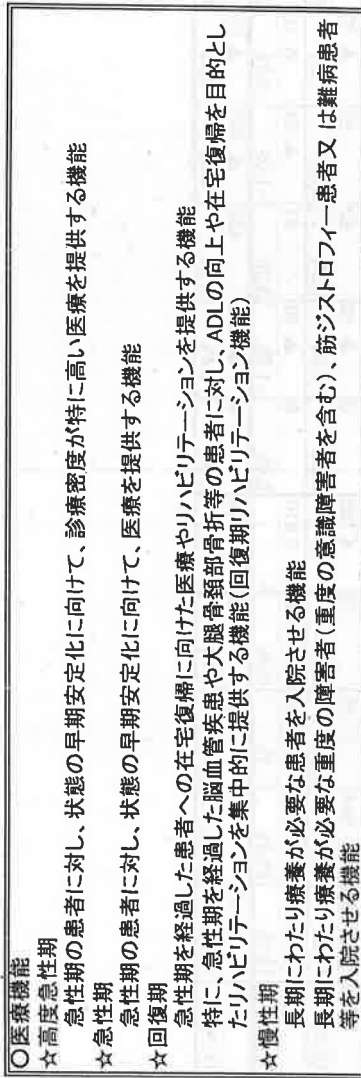 ○医療機能
☆高度急性期
急性期の患者に対し、状態の早期安定化に向けて、診療密度が特に高い医療を提供する機能
☆急性期
急性期の患者に対し、状態の早期安定化に向けて、医療を提供する機能
☆回復期
急性期を経過した患者への在宅復帰に向けた医療やリハビリテーションを提供する機能
特に、急性期を経過した脳血管疾患や大腿骨頚部骨折等の患者に対し、ADLの向上や在宅復帰を目的とし
たリハビリテーションを集中的に提供する機能(回復期リハビリテーション機能)
☆慢性期
長期にわたり療養が必要な患者を入院させる機能
長期にわたり療養が必要な重度の障害者(重度の意識障害者を含む)、筋ジストロフィー患者又は難病患者
等を入院させる機能